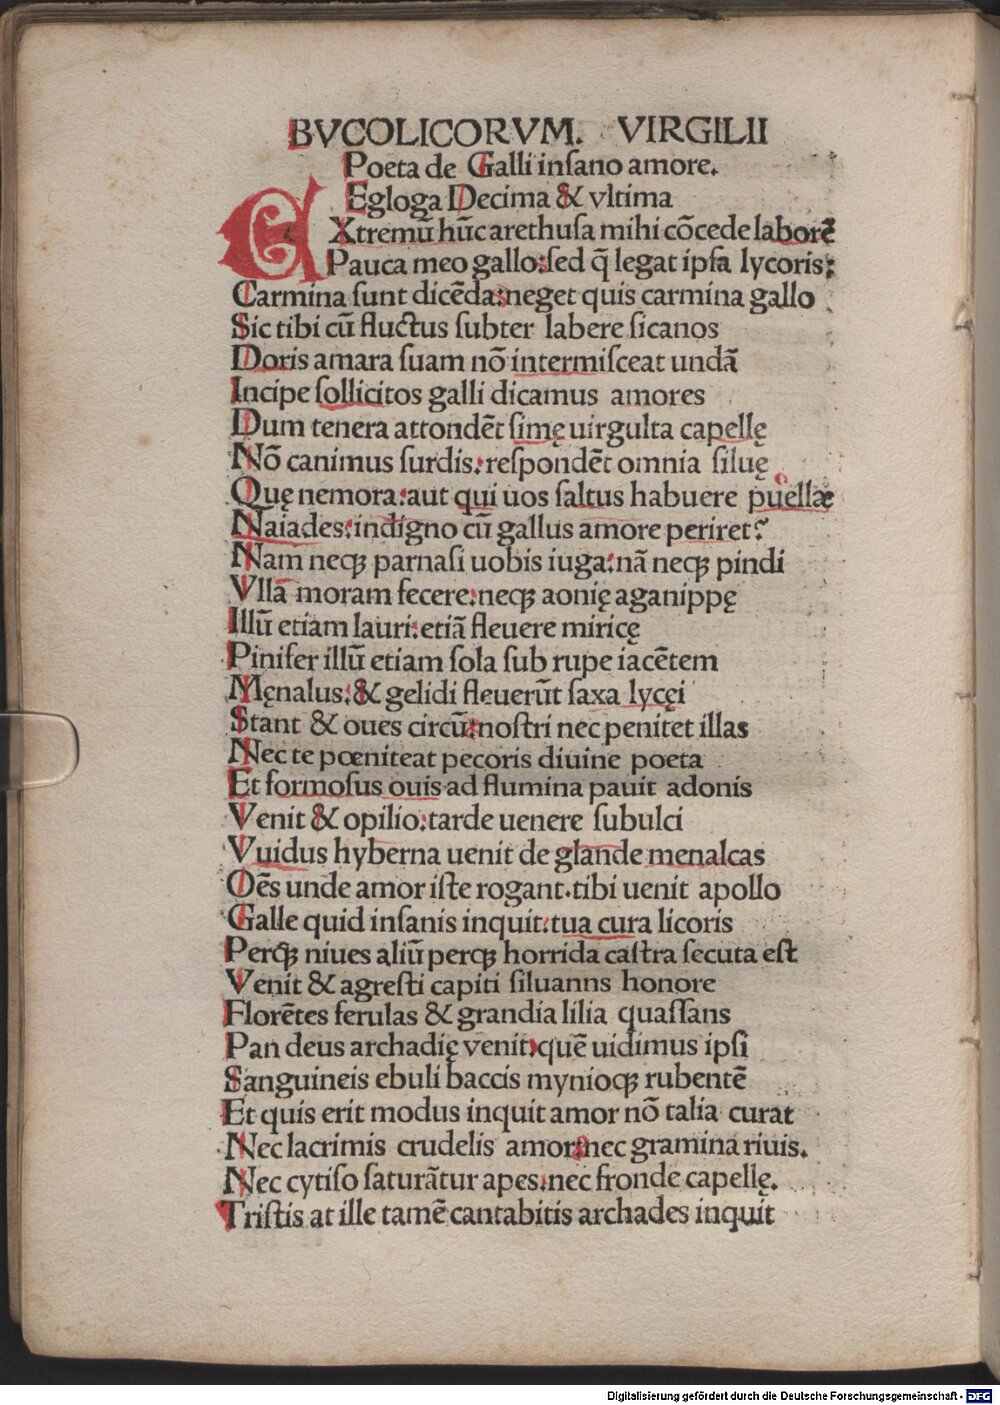 BVCOLICORVM. VIRGILII
Poeta de Galli inſano amore.
Egloga Decima & vltima
EXtremū hūc arethuſa mihi cōcede laborē
Pauca meo gallo:ſed q̄ legat ipſa lycoris:
Carmina ſunt dicēda:neget quis carmina gallo
Sic tibi cū fluctus ſubter labere ſicanos
Doris amara ſuam nō intermiſceat undā
Incipe ſollicitos galli dicamus amores
Dum tenera attondēt ſimę uirgulta capellę
Nō canimus ſurdis:reſpondēt omnia ſiluę
Quę nemora:aut qui uos ſaltus habuere puellae
Naiades:indigno cū gallus amore periret?
Nam neqꝫ parnaſi uobis iuga:nā neqꝫ pindi
Vllā moram fecere:neqꝫ aonię aganippę
Illū etiam lauri:etiā fleuere miricę
Pinifer illū etiam ſola ſub rupe iacētem
Męnalus:& gelidi fleuerūt ſaxa lycęi
Stant & oues circū:noſtri nec penitet illas
Nec te pœniteat pecoris diuine poeta
Et formoſus ouis ad flumina pauit adonis
Venit & opilio:tarde uenere ſubulci
Vuidus hyberna uenit de glande menalcas
Oēs unde amor iſte rogant.tibi uenit apollo
Galle quid inſanis inquit:tua cura licoris
Perqꝫ niues aliū perqꝫ horrida caſtra ſecuta eſt
Venit & agreſti capiti ſiluanns honore
Florētes ferulas & grandia lilia quaſſans
Pan deus archadię venit:quē uidimus ipſi
Sanguineis ebuli baccis mynioqꝫ rubentē
Et quis erit modus inquit amor nō talia curat
Nec lacrimis crudelis amor:nec gramina riuis.
Nec cytiſo ſaturātur apes:nec fronde capellę.
Triſtis at ille tamē cantabitis archades inquit
Digitalisierung gefördert durch die Deutsche Forschungsgemeinschaft - DFG